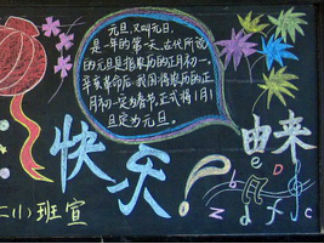 元旦,又叫元日,
是一年的第一天。古代所说
的元旦是指农历的正月初一。
辛亥革命后,我国将农历的正
月初一定为春节,正式将1月1
日定为元旦。
快乐
由来
二(1)班宣